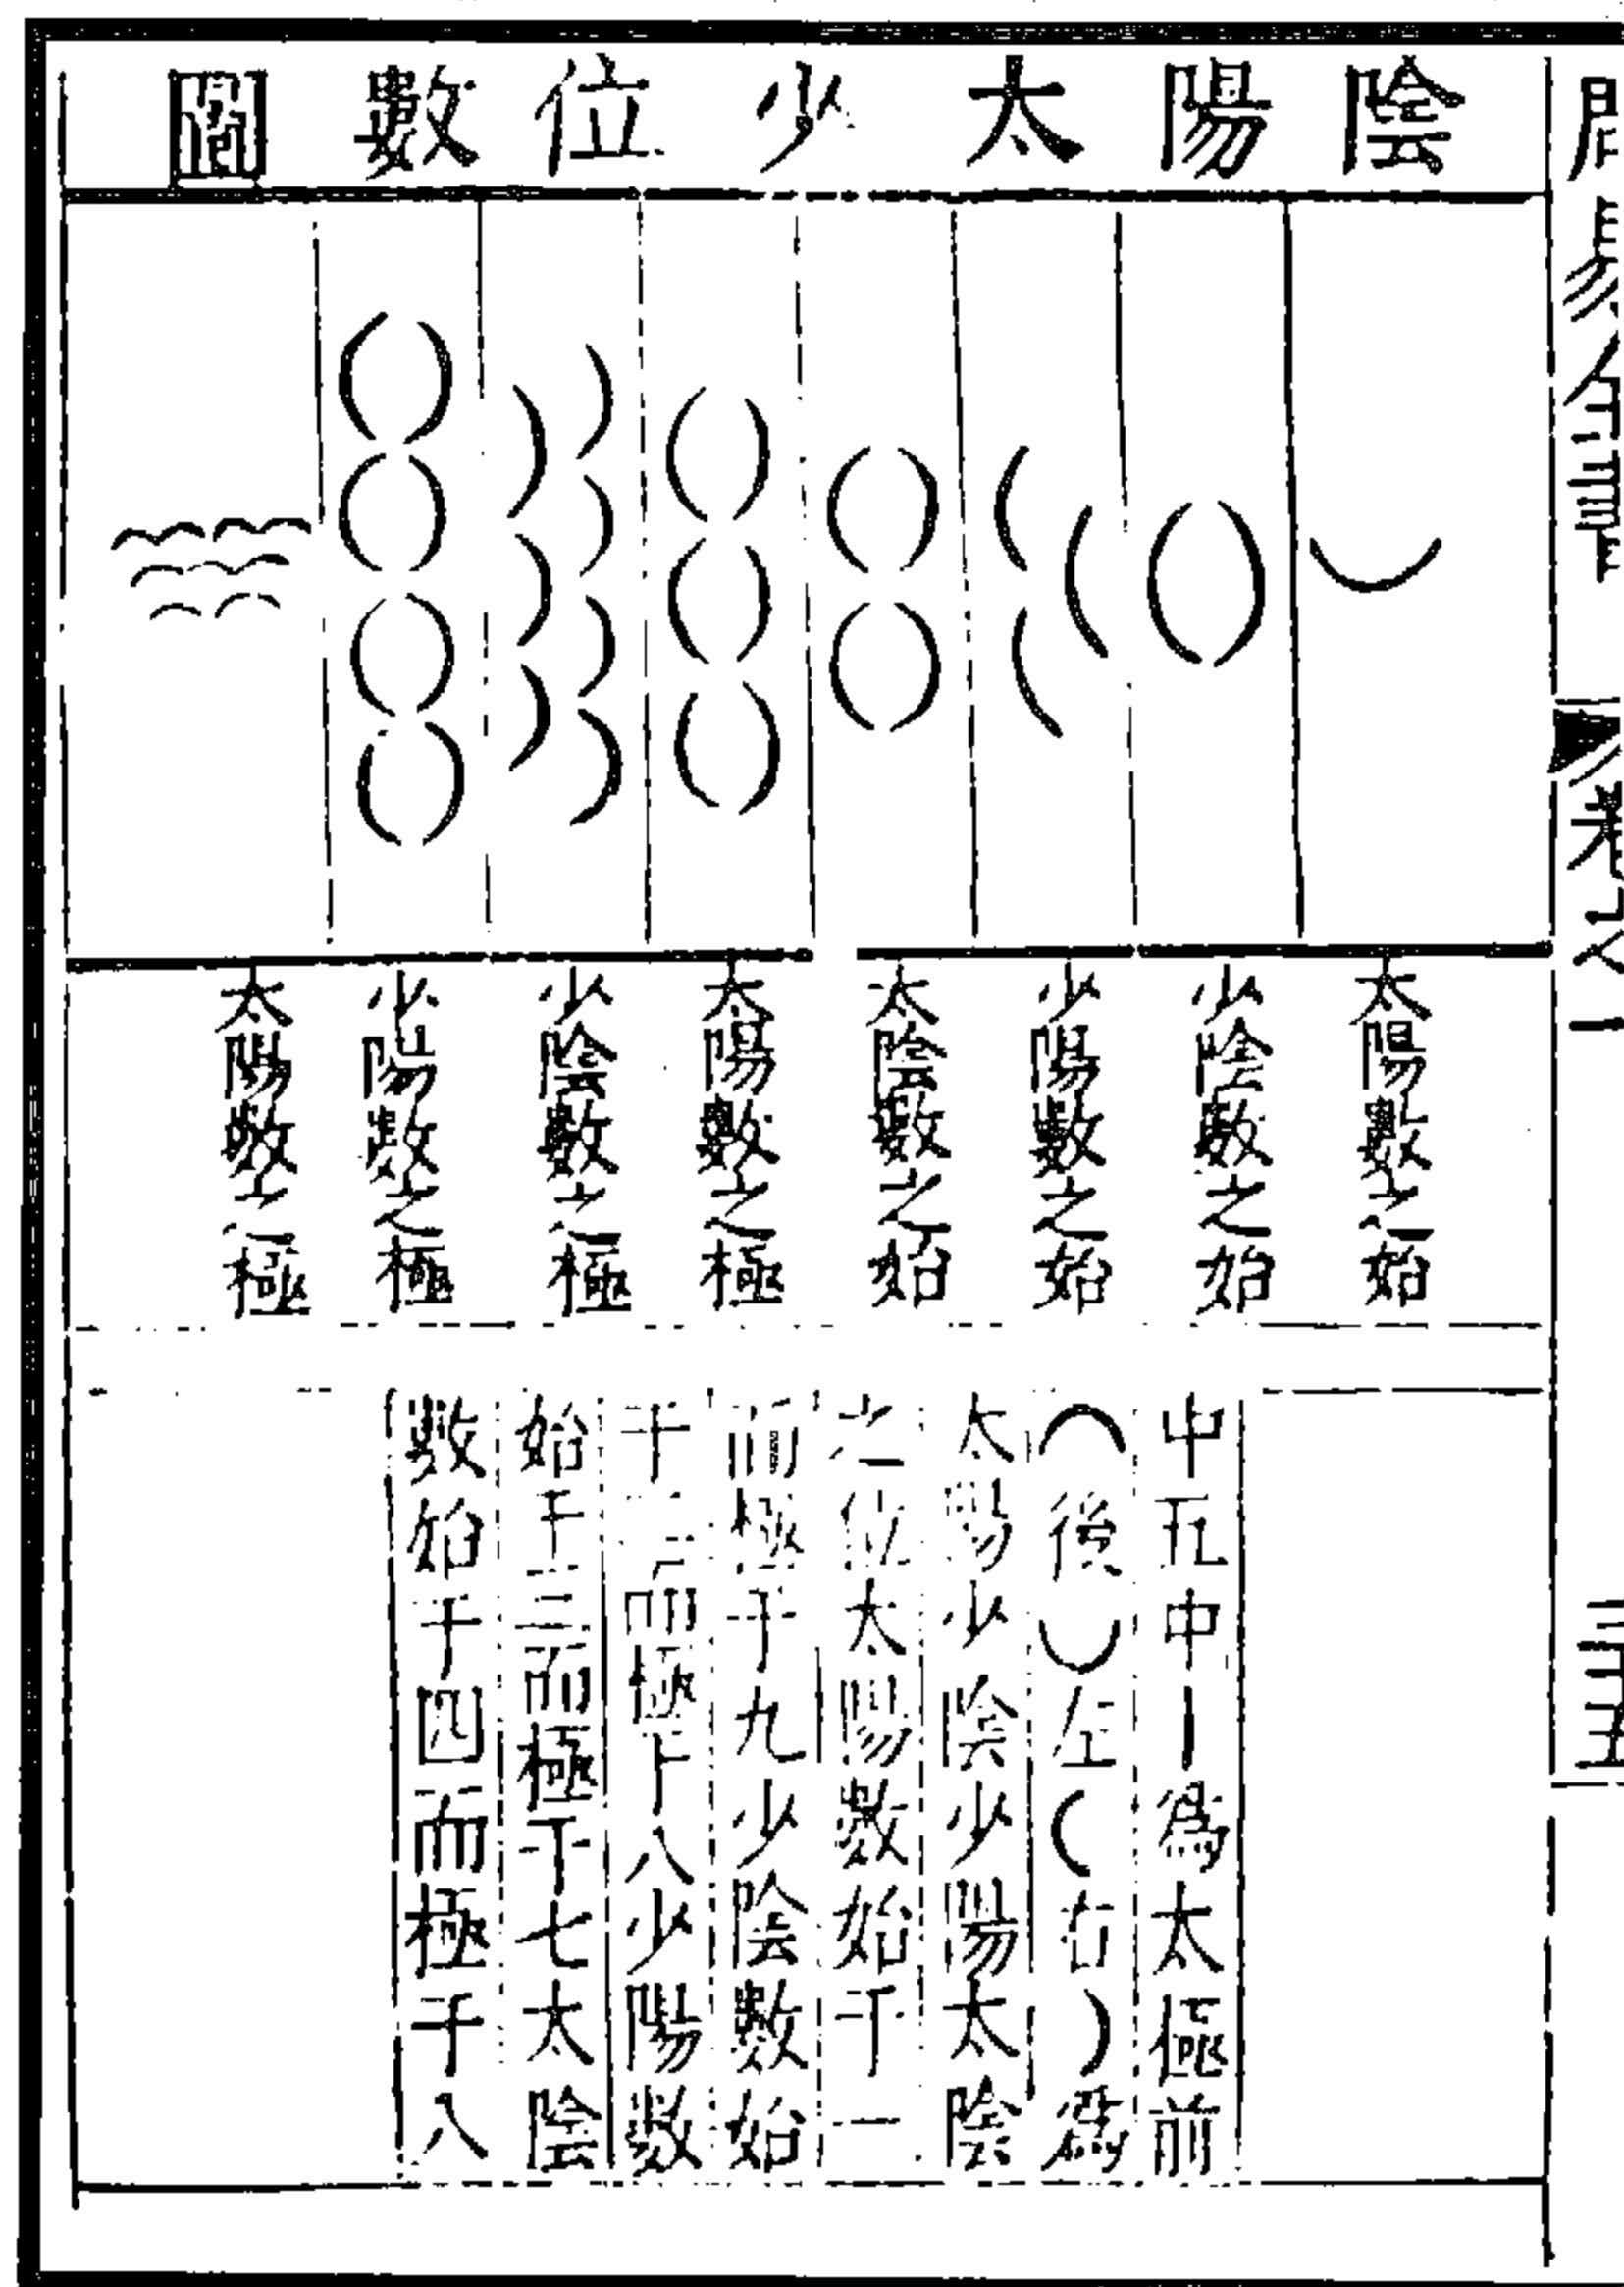 周易卷之一
三十五
陰陽太少位數圖
太陽數之始
少陰數之始
少陽數之始
太陰數之始
太陽數之極
少陰數之極
少陽數之極
太陽數之極
中五中丨爲太極前
︵後︶左(右)爲
太陽少陰少陽太陰
之位太陽數始于一
而極于九少陰數始
于二而極于八少陽數
始于三而極于七太陰
數始于四而極于八